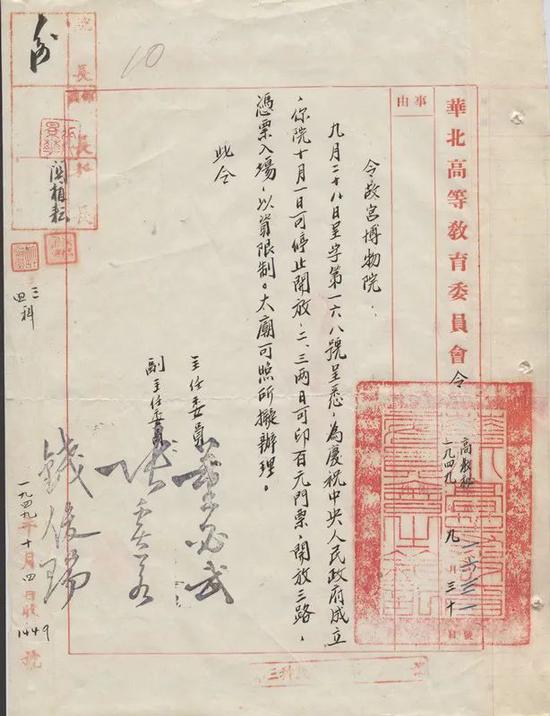 華北高等教育委員會令
事由
高教秘
一九四九
九月三十日
號
令故宮博物院:
九月二十八日呈字第一六八號呈悉,為慶祝中央人民政府成立
,你院十月一日可停止開放,二、三兩日可印百元門票,開放三路,
憑票入場,以資限制。太廟可照所擬辦理。
此令
主任委員 董必武
副主任委員 張奚若
錢俊瑞
一九四九年十月四日收
1449號
10
院長
三四科